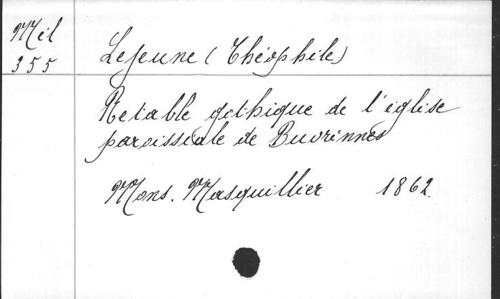 Mél
355
Lejeune (Théophile)
Retable gothique de l'église
paroissiale de Buvrinnes
Mons. Masquillier 1862